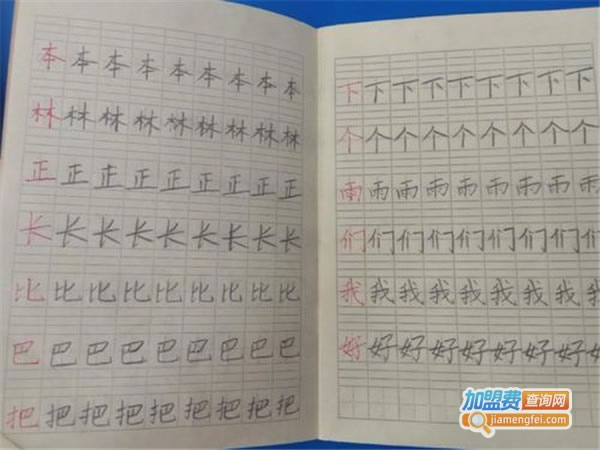 本本本本本本本本本
林林林林林林林林林
正正正正正正正正正
长长长长长长长长长
比比比比比比比比比
巴巴巴巴巴巴巴巴巴
把把把把把把把把把
下下下下下下下下下
个个个个个个个个个
雨雨雨雨雨雨雨雨雨
们们们们们们们们们
我我我我我我我我我
好好好好好好好好
加盟费查询网
jiamengfei.com